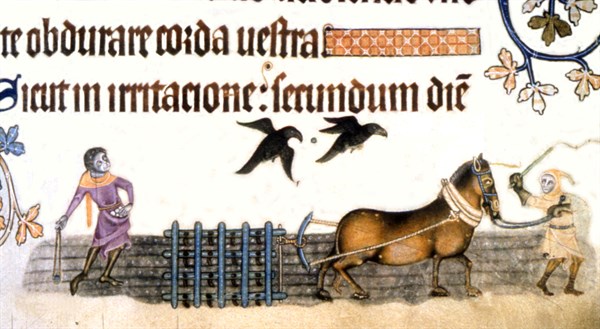 te obdurare corda uestra
Sicut in irritacione : secundum diē